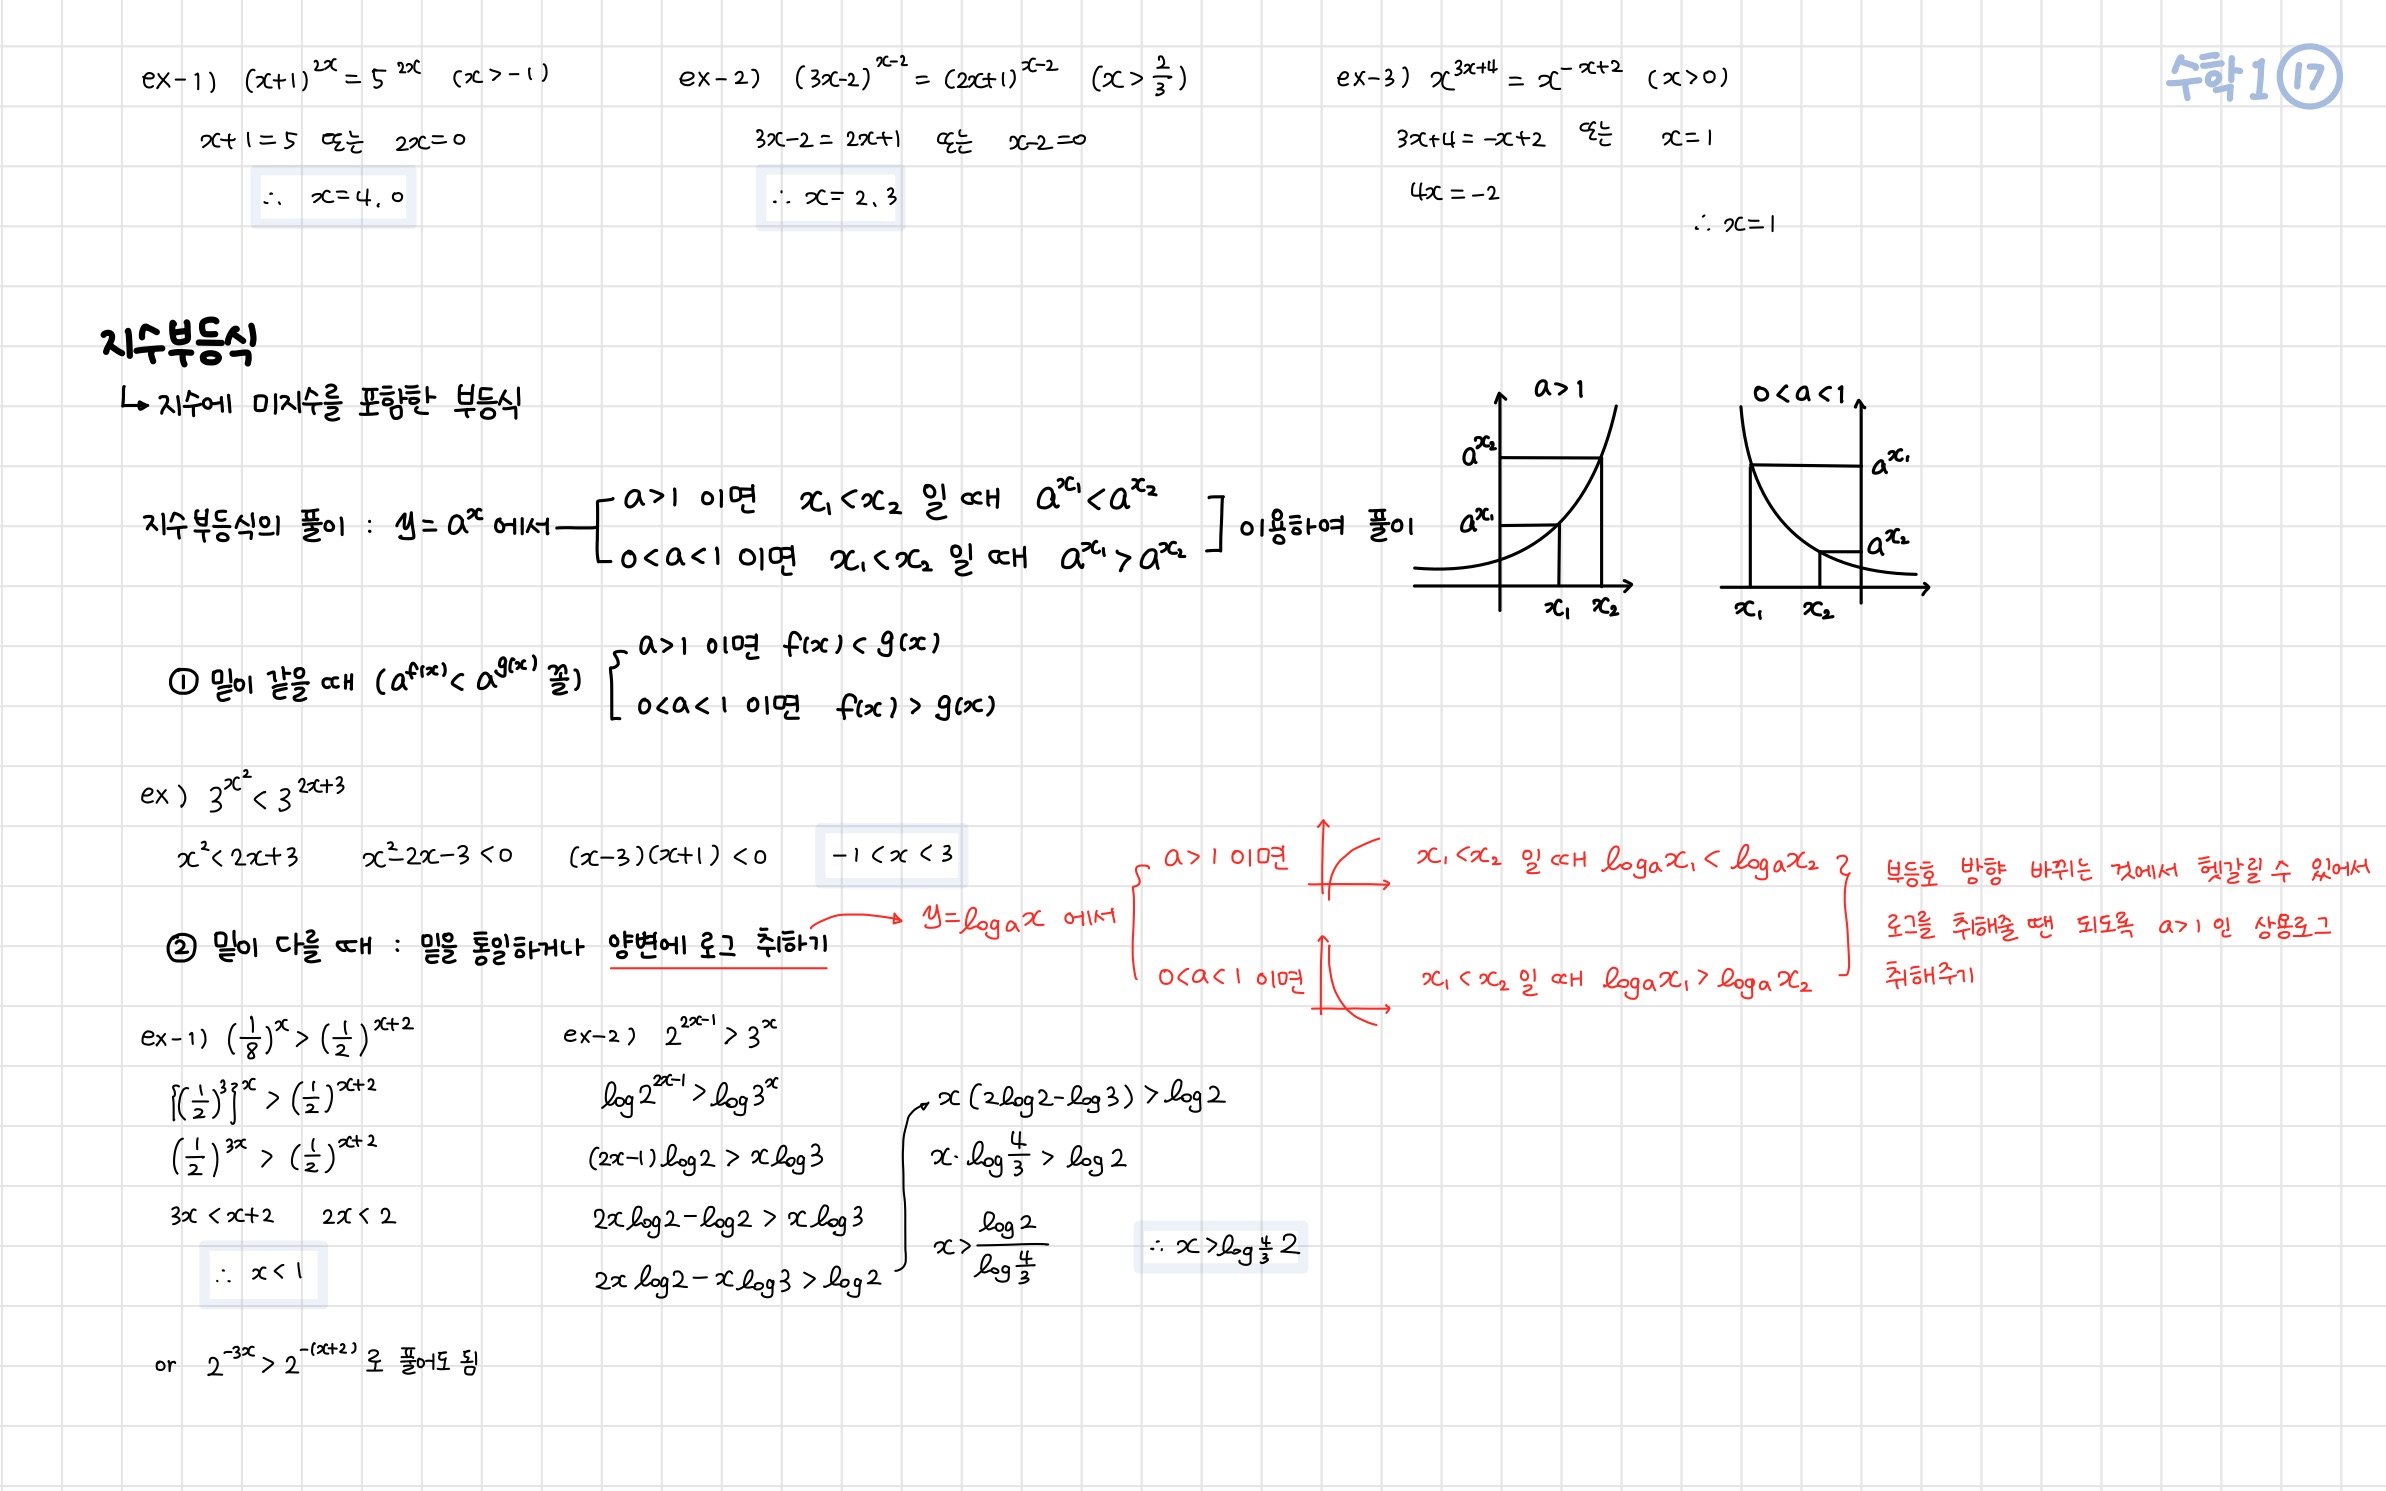 수학1 ⑰
ex-1) (x+1)^{2x} = 5^{2x} (x>-1)
x+1=5 또는 2x=0
∴ x=4, 0
ex-2) (3x-2)^{x-2} = (2x+1)^{x-2} (x>2/3)
3x-2=2x+1 또는 x-2=0
∴ x=2, 3
ex-3) x^{3x+4} = x^{-x+2} (x>0)
3x+4=-x+2 또는 x=1
4x=-2
∴ x=1
지수부등식
↳ 지수에 미지수를 포함한 부등식
지수부등식의 풀이 : y=a^x 에서
a>1 이면 x₁<x₂ 일 때 a^{x₁}<a^{x₂}
0<a<1 이면 x₁<x₂ 일 때 a^{x₁}>a^{x₂}
이용하여 풀이
a>1
a^{x₂}
a^{x₁}
x₁ x₂
0<a<1
a^{x₁}
a^{x₂}
x₁ x₂
① 밑이 같을 때 (a^{f(x)}<a^{g(x)} 꼴)
a>1 이면 f(x)<g(x)
0<a<1 이면 f(x)>g(x)
ex) 3^{x²}<3^{2x+3}
x²<2x+3 x²-2x-3<0 (x-3)(x+1)<0 -1<x<3
② 밑이 다를 때 : 밑을 통일하거나 양변에 로그 취하기
→ y=log_a x 에서
a>1 이면 x₁<x₂ 일 때 log_a x₁<log_a x₂
0<a<1 이면 x₁<x₂ 일 때 log_a x₁>log_a x₂
부등호 방향 바뀌는 것에서 헷갈릴 수 있어서
로그를 취해줄 땐 되도록 a>1 인 상용로그
취해주기
ex-1) (1/8)^x>(1/2)^{x+2}
{(1/2)^3}^x>(1/2)^{x+2}
(1/2)^{3x}>(1/2)^{x+2}
3x<x+2 2x<2
∴ x<1
or 2^{-3x}>2^{-(x+2)} 로 풀어도 됨
ex-2) 2^{2x-1}>3^x
log2^{2x-1}>log3^x
(2x-1)log2>xlog3
2xlog2-log2>xlog3
2xlog2-xlog3>log2
x(2log2-log3)>log2
x·log 4/3>log2
x>log2/log 4/3
∴ x>log_{4/3} 2